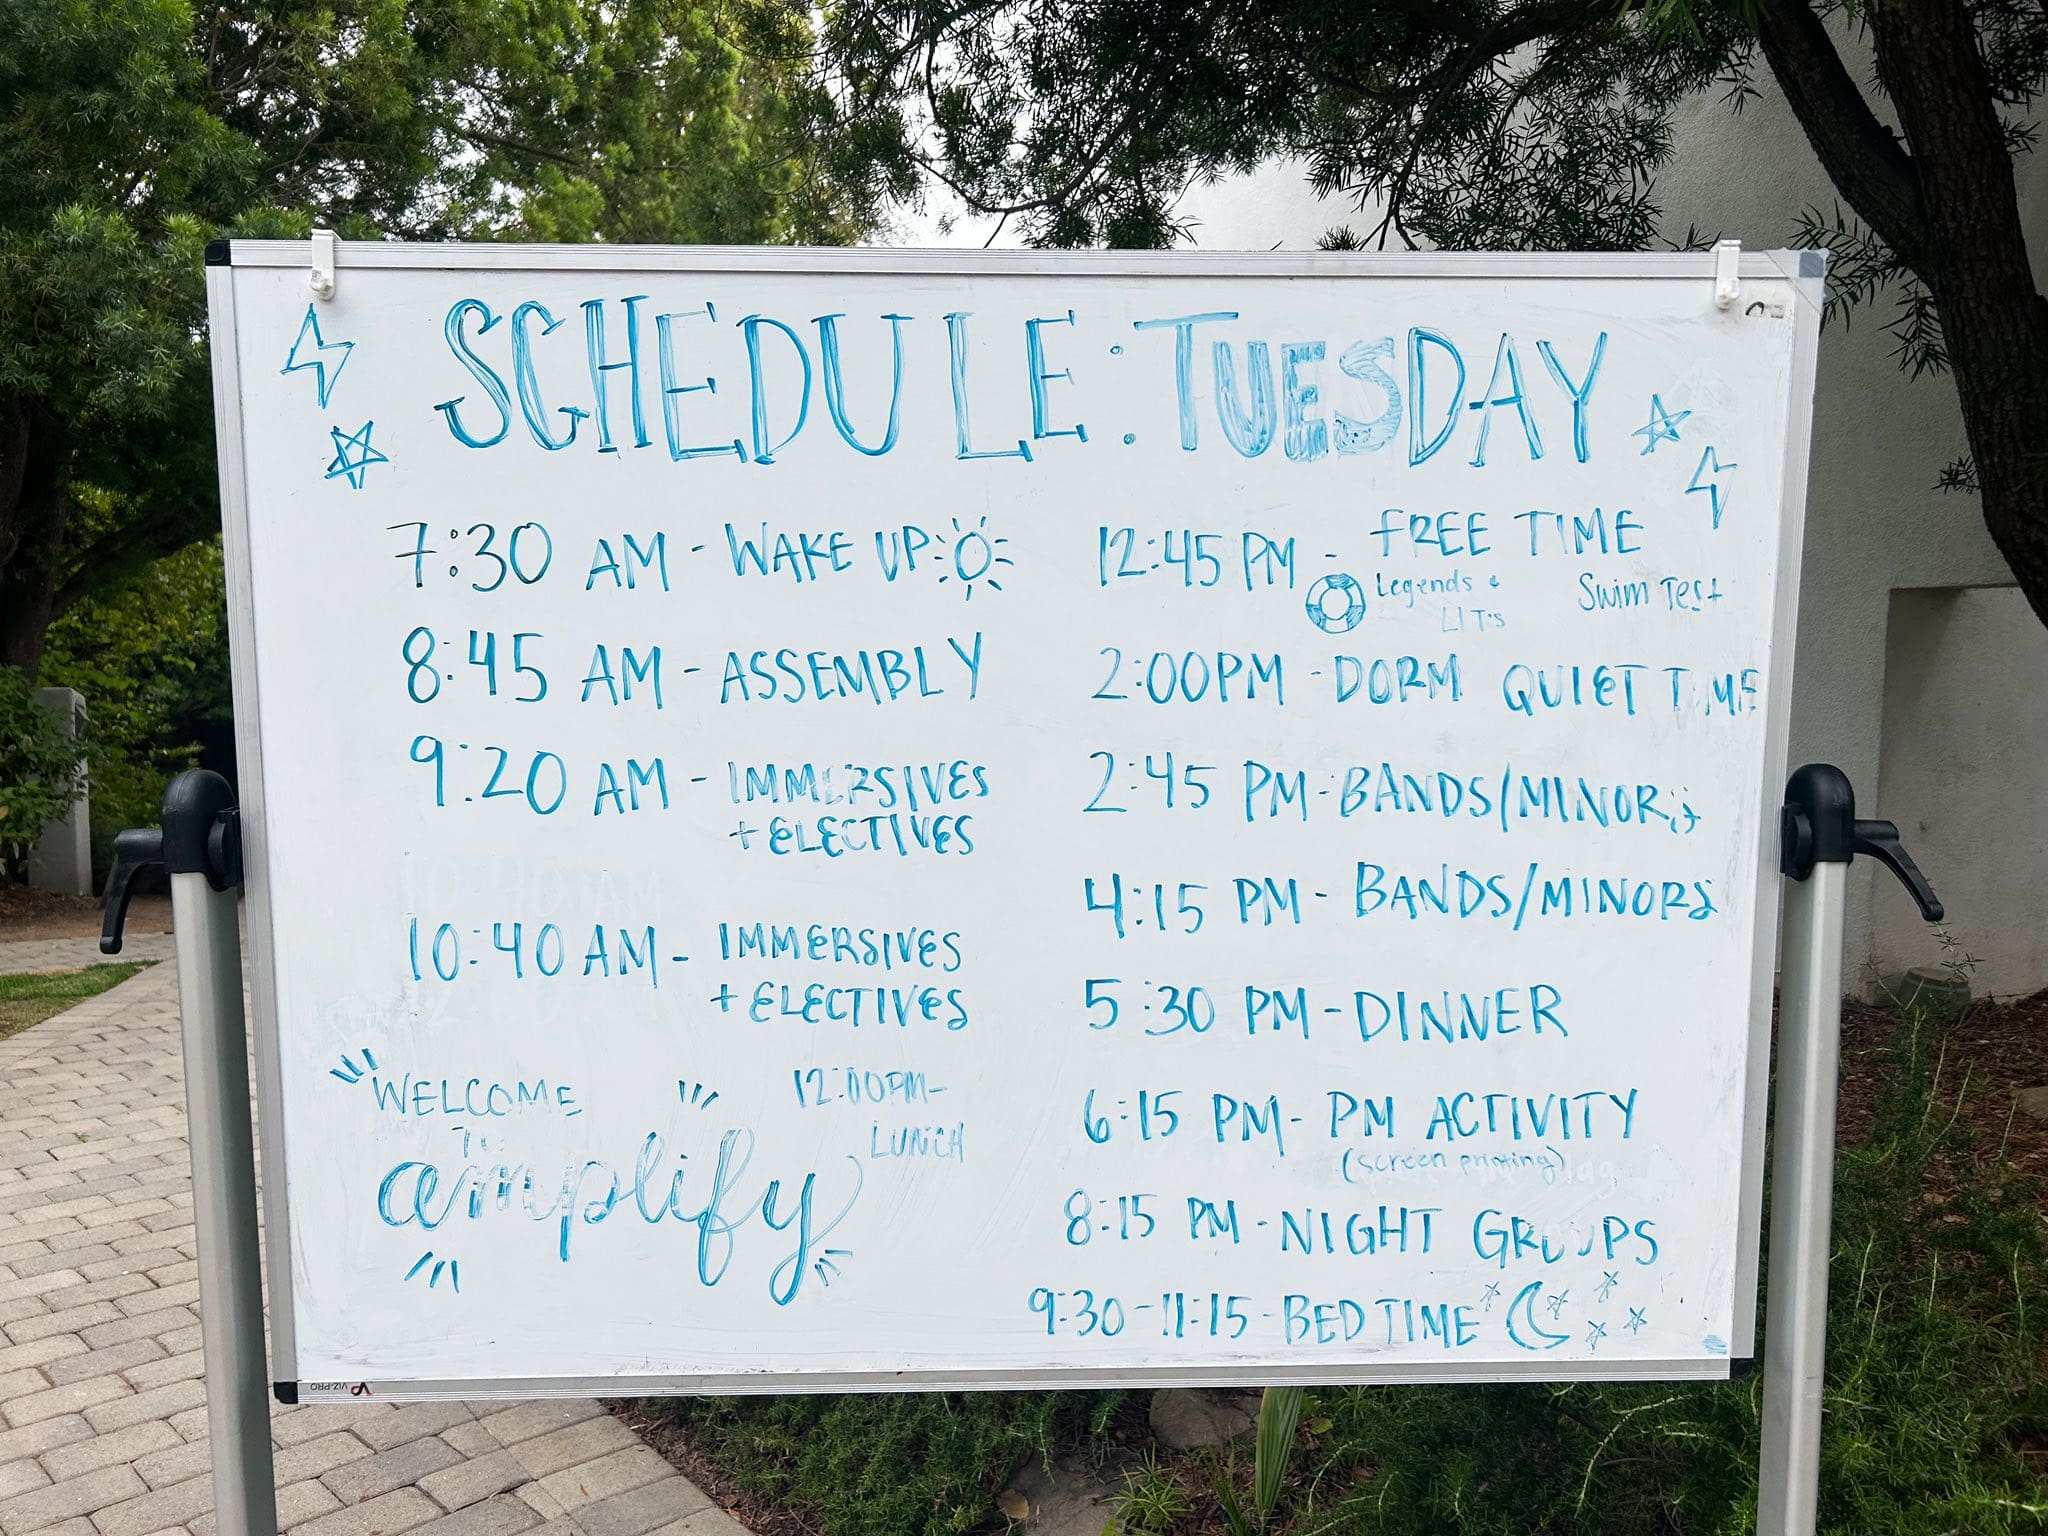 SCHEDULE: TUESDAY
7:30 AM - WAKE UP
8:45 AM - ASSEMBLY
9:20 AM - IMMERSIVES
+ ELECTIVES
10:40 AM
10:40 AM - IMMERSIVES
+ ELECTIVES
12:00PM-
LUNCH
WELCOME
TO
amplify
12:45 PM - FREE TIME
Legends & Swim Test
LIT's
2:00PM - DORM QUIET TIME
2:45 PM - BANDS/MINORS
4:15 PM - BANDS/MINORS
5:30 PM - DINNER
6:15 PM - PM ACTIVITY
(screen printing)
8:15 PM - NIGHT GROUPS
9:30 - 11:15 - BED TIME
VIZ-PRO